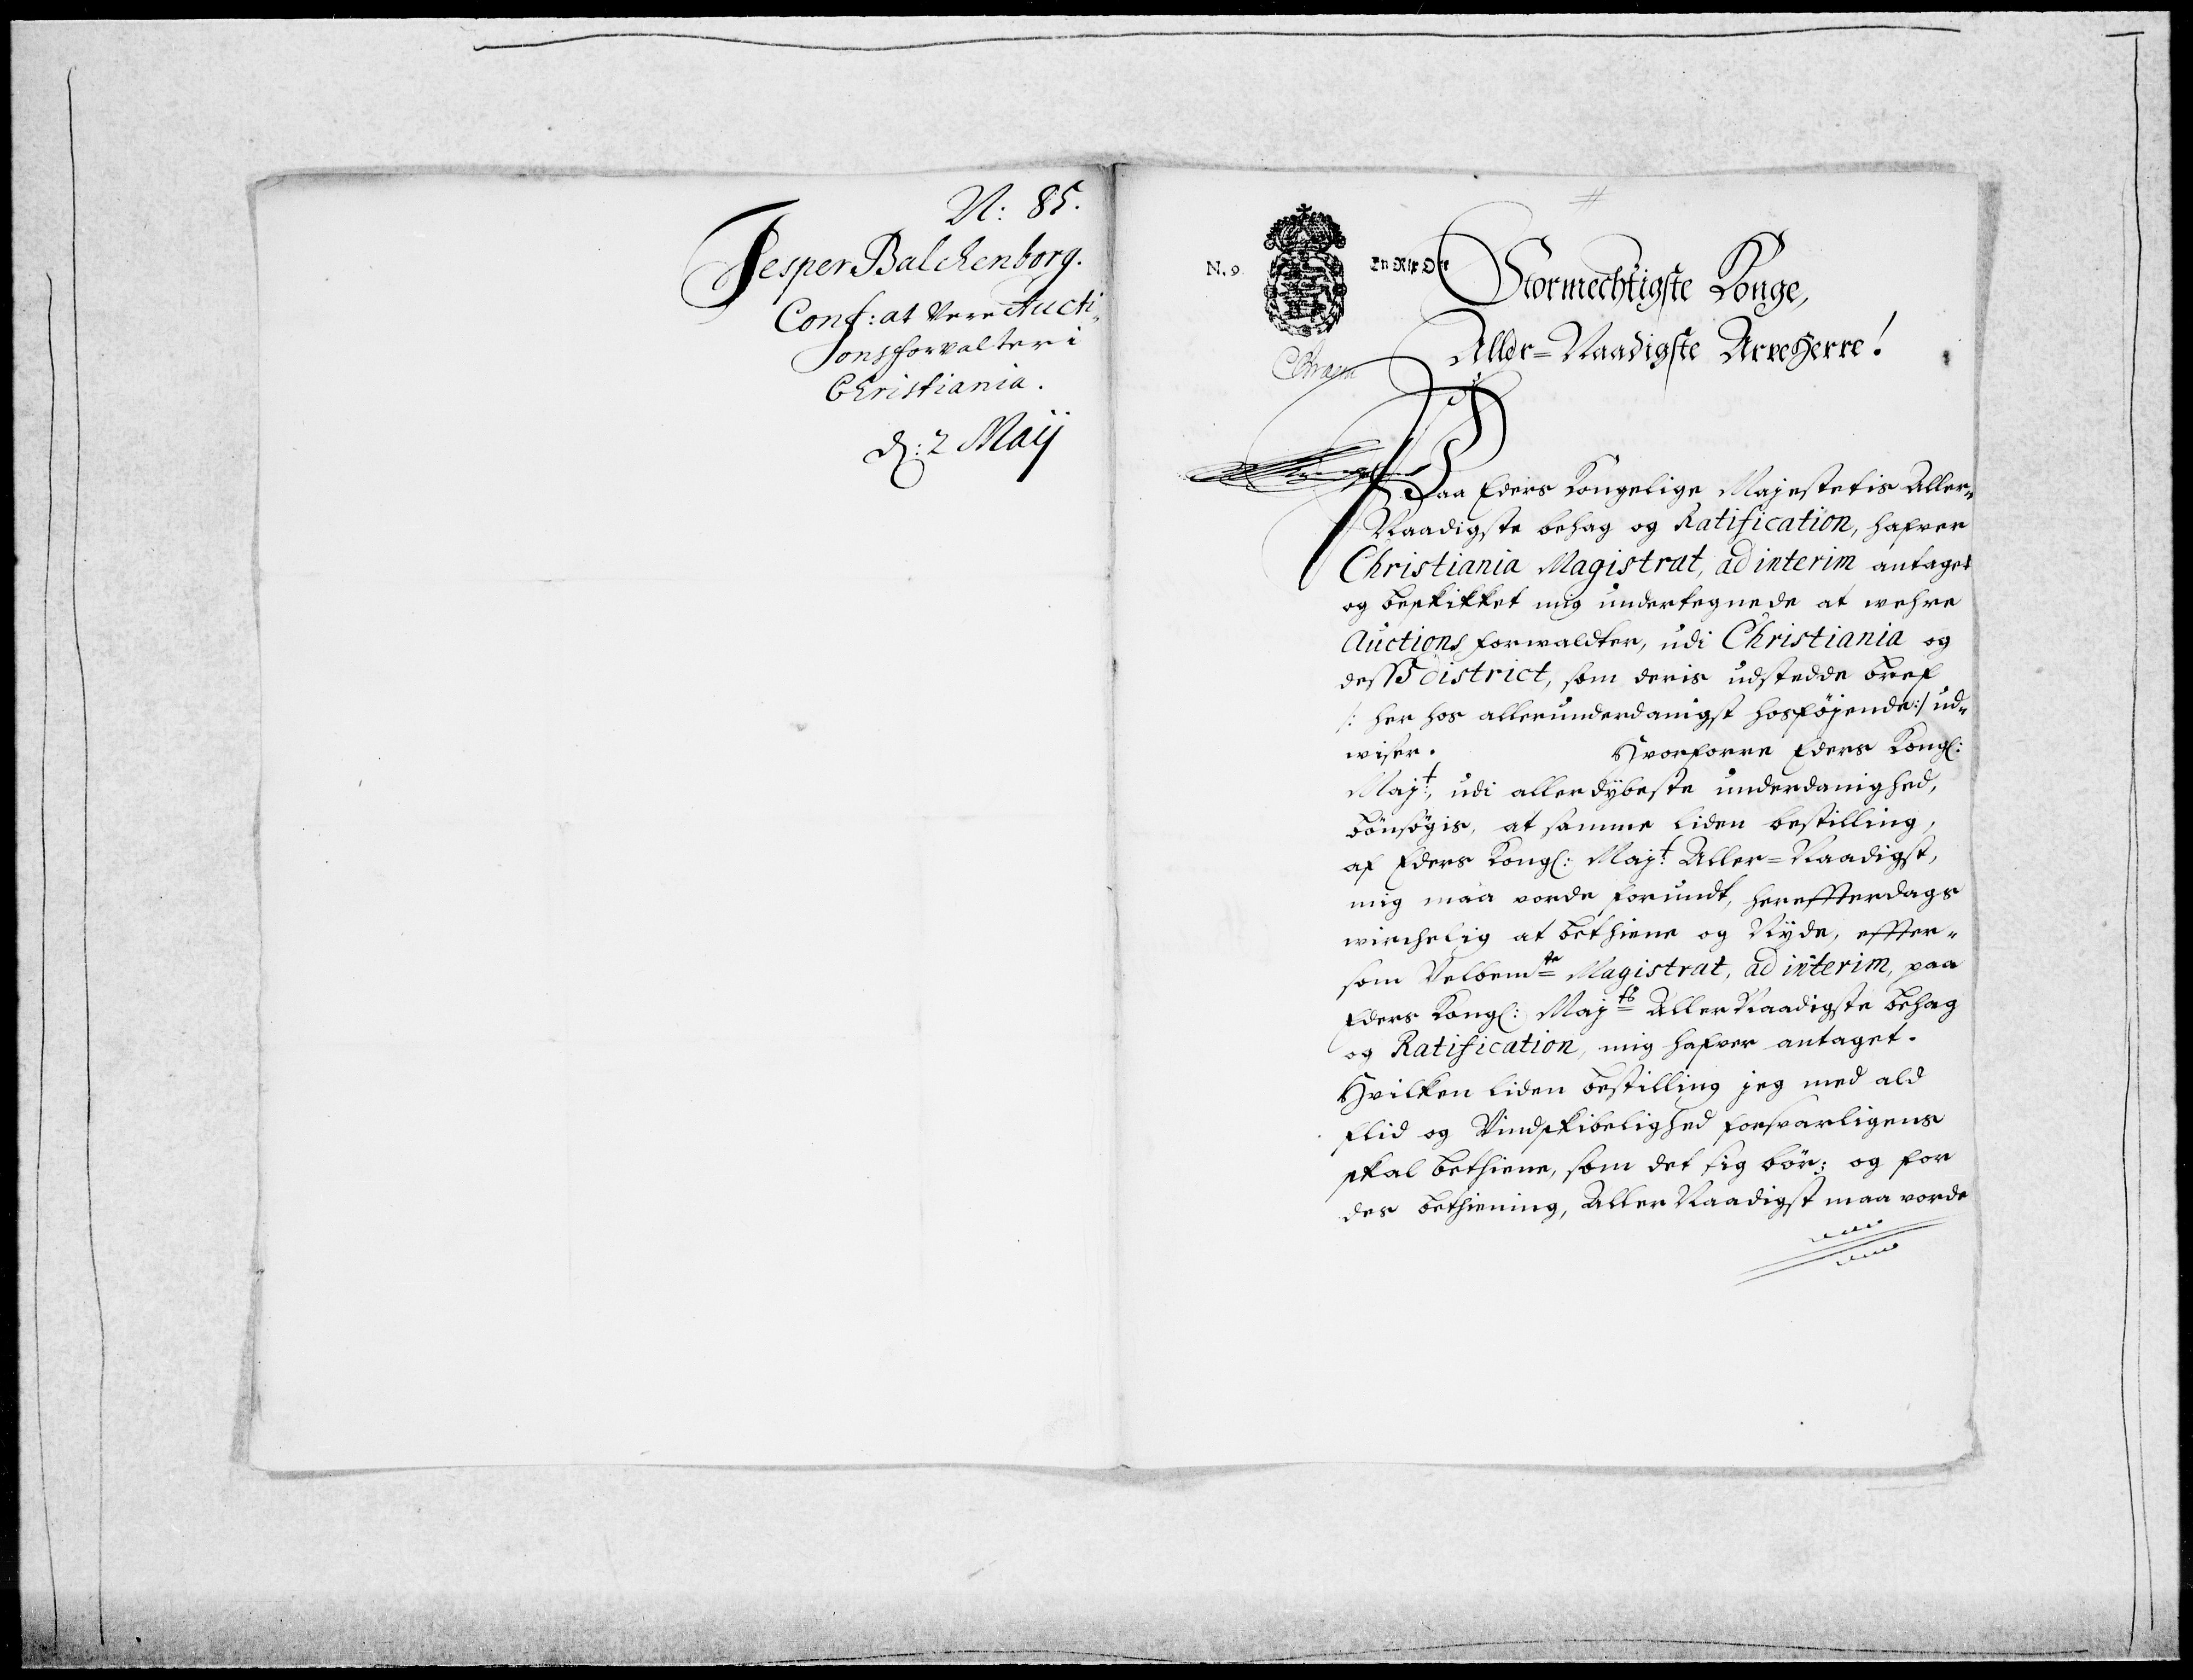 N: 85.
Jesper Balchenborg.
Conf: at Vere Aucti„
onsforvalter i
Christiania.
d: 2 Maij
N. 9.
En Rix Ort
Stormechtigste Konge,
Aller=Naadigste ArveHerre!
Paa Eders Kongelige Majestetis Aller„
Naadigste behag og Ratification, hafver
Christiania Magistrat, ad interim antaget
og beskikket mig undertegnede at wehre
Auctions forwaldter, udi Christiania og
dess district, som deris udstedde bref
/: her hos allerunderdanigst hosföjende:/ ud„
wiser. Hvorforre Eders Kongl:
Majt:, udi allerdybeste underdanighed,
bönsögis, at samme liden bestilling,
af Eders Kongl: Majt: Aller=Naadigst,
mig maa vorde forundt, hereffterdags
wirchelig at bethiene og Nyde, effter„
som Velbemte Magistrat, ad interim, paa
Eders Kongl: Majts AllerNaadigste behag
og Ratification, mig hafver antaget.
Hvilken liden bestilling jeg med ald
flid og Vindskibelighed forsvarligens
skal bethiene, som det sig bör; og for
des bethiening, AllerNaadigst maa vorde